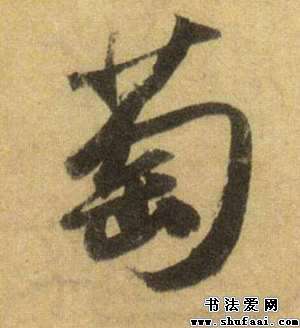 萄
书法爱网
www.shufaai.com